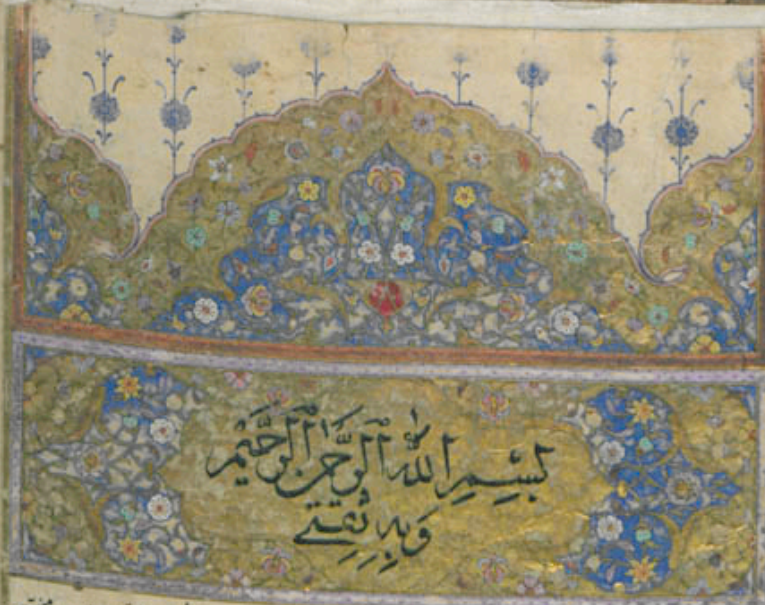 بِسْمِ اللّٰهِ الرَّحْمٰنِ الرَّحِيْمِ
وَبِهِ ثِقَتِي